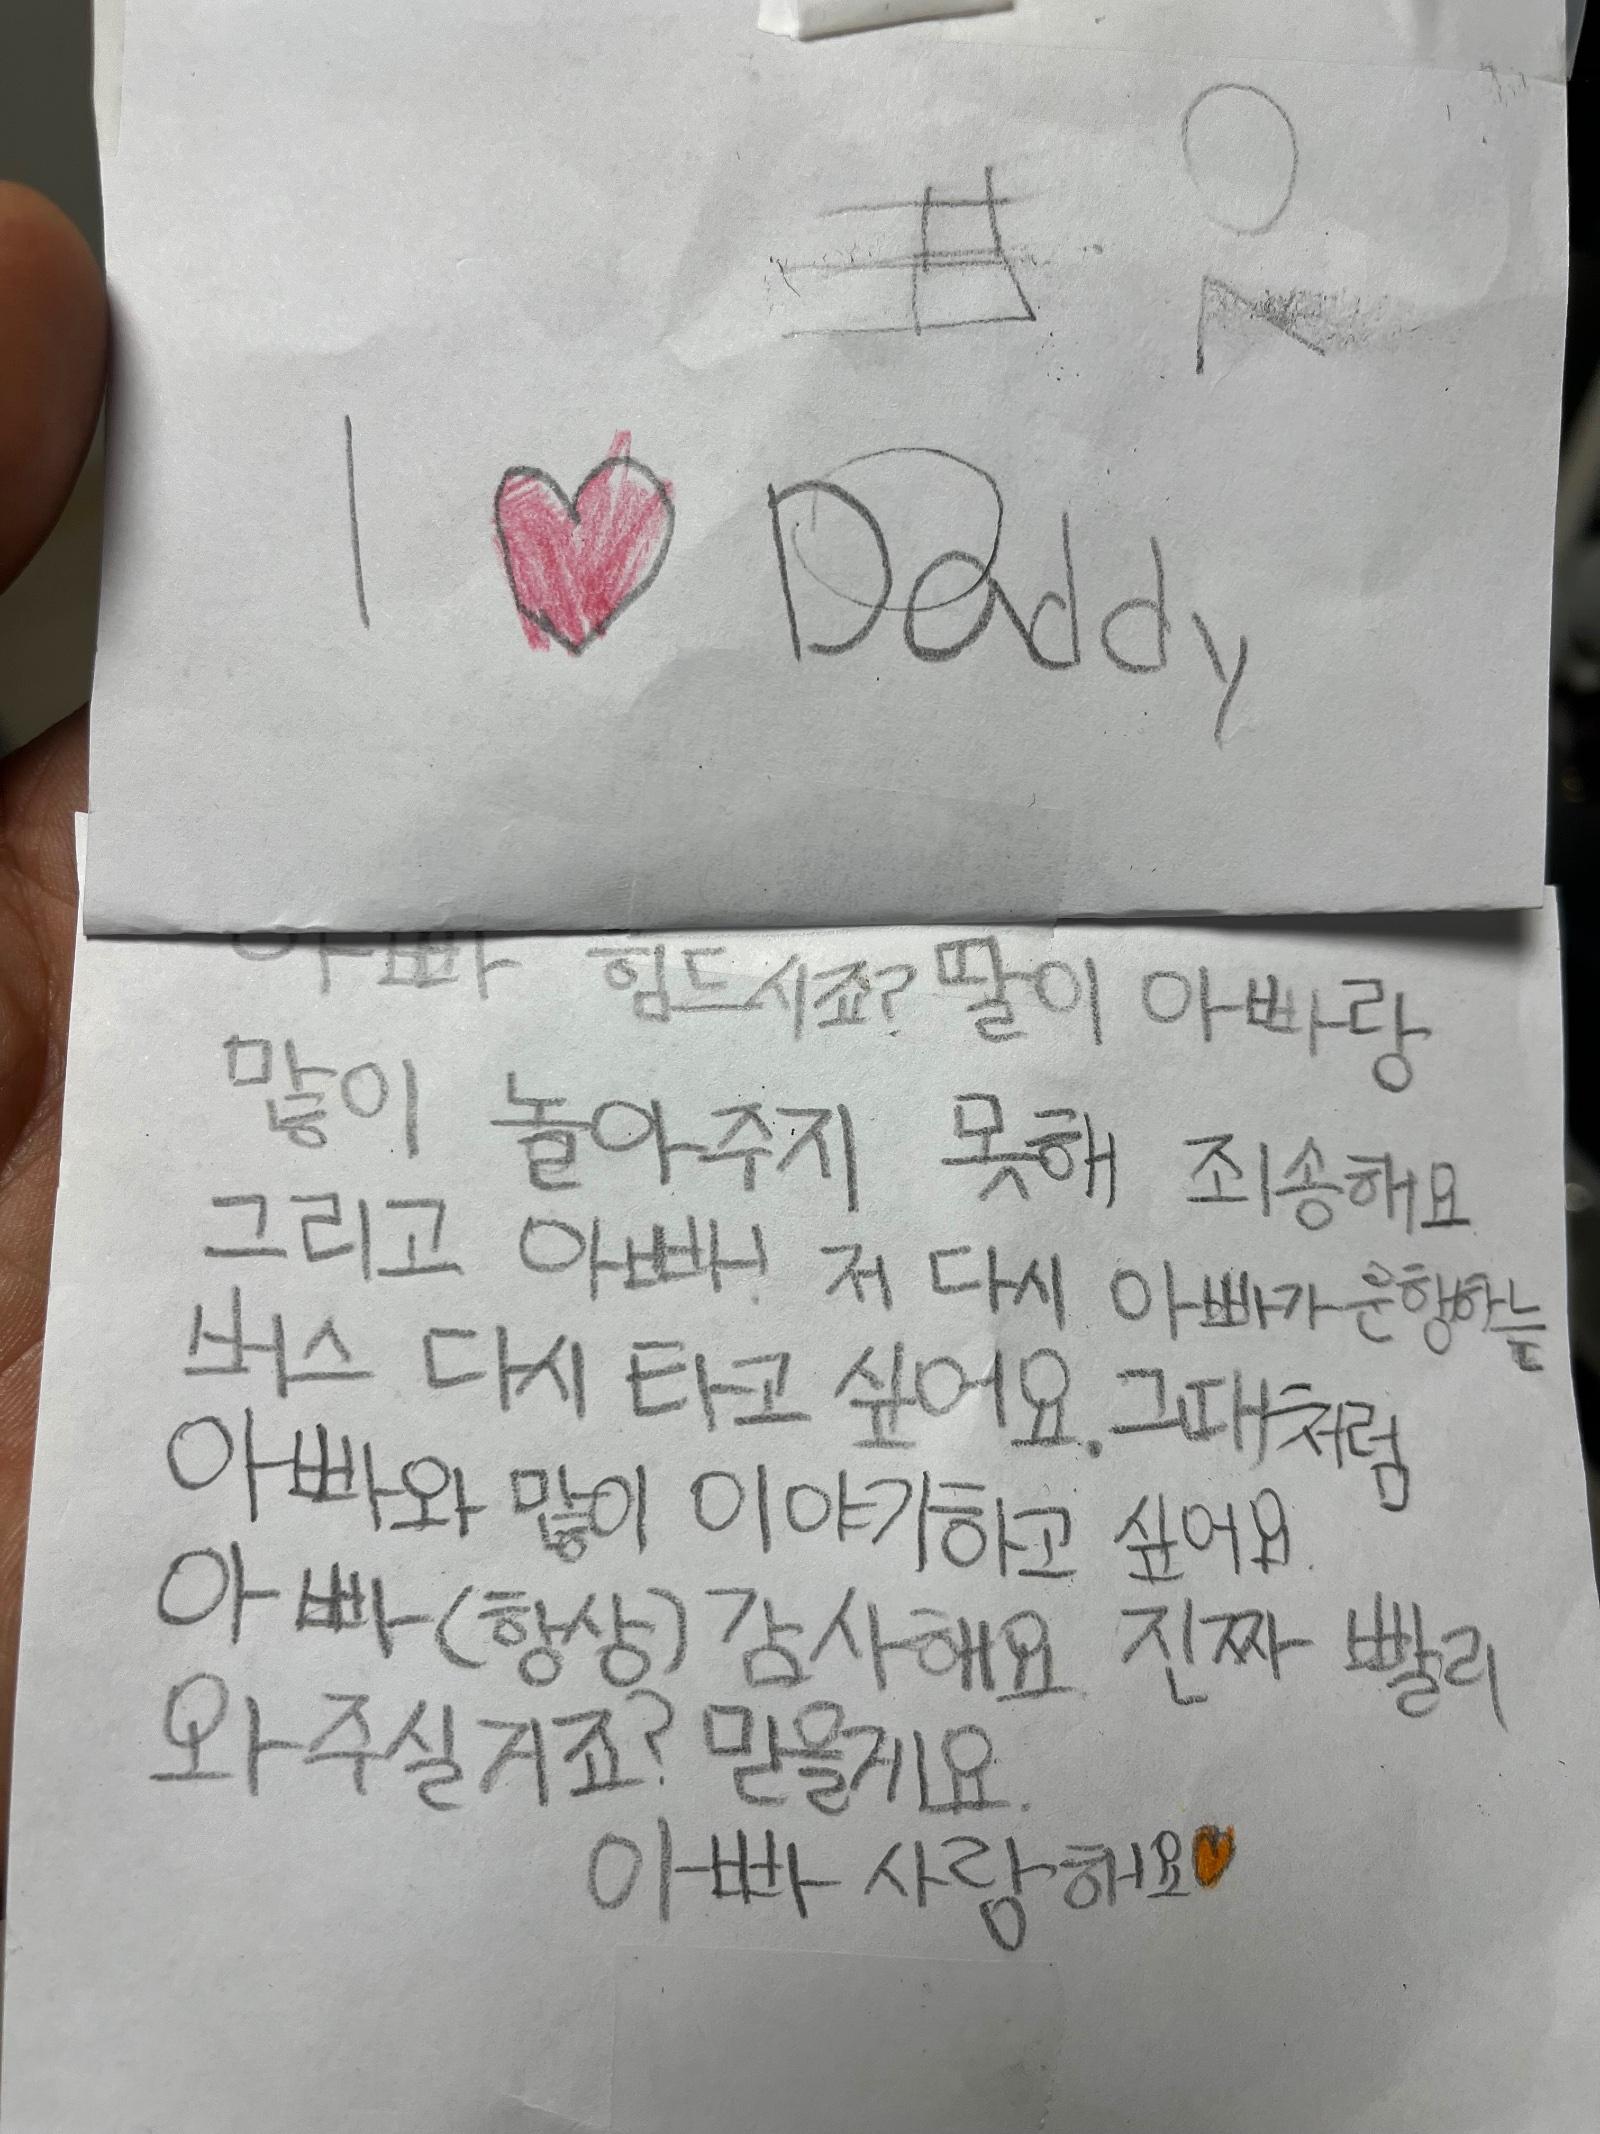 I ♥ Daddy
아빠 힘드시죠? 딸이 아빠랑
많이 놀아주지 못해 죄송해요
그리고 아빠! 저 다시 아빠가 운행하는
뻐스 다시 타고 싶어요. 그때처럼
아빠와 많이 이야기하고 싶어요.
아빠(항상) 감사해요 진짜 빨리
와 주실거죠? 믿을게요.
아빠 사랑해요♥